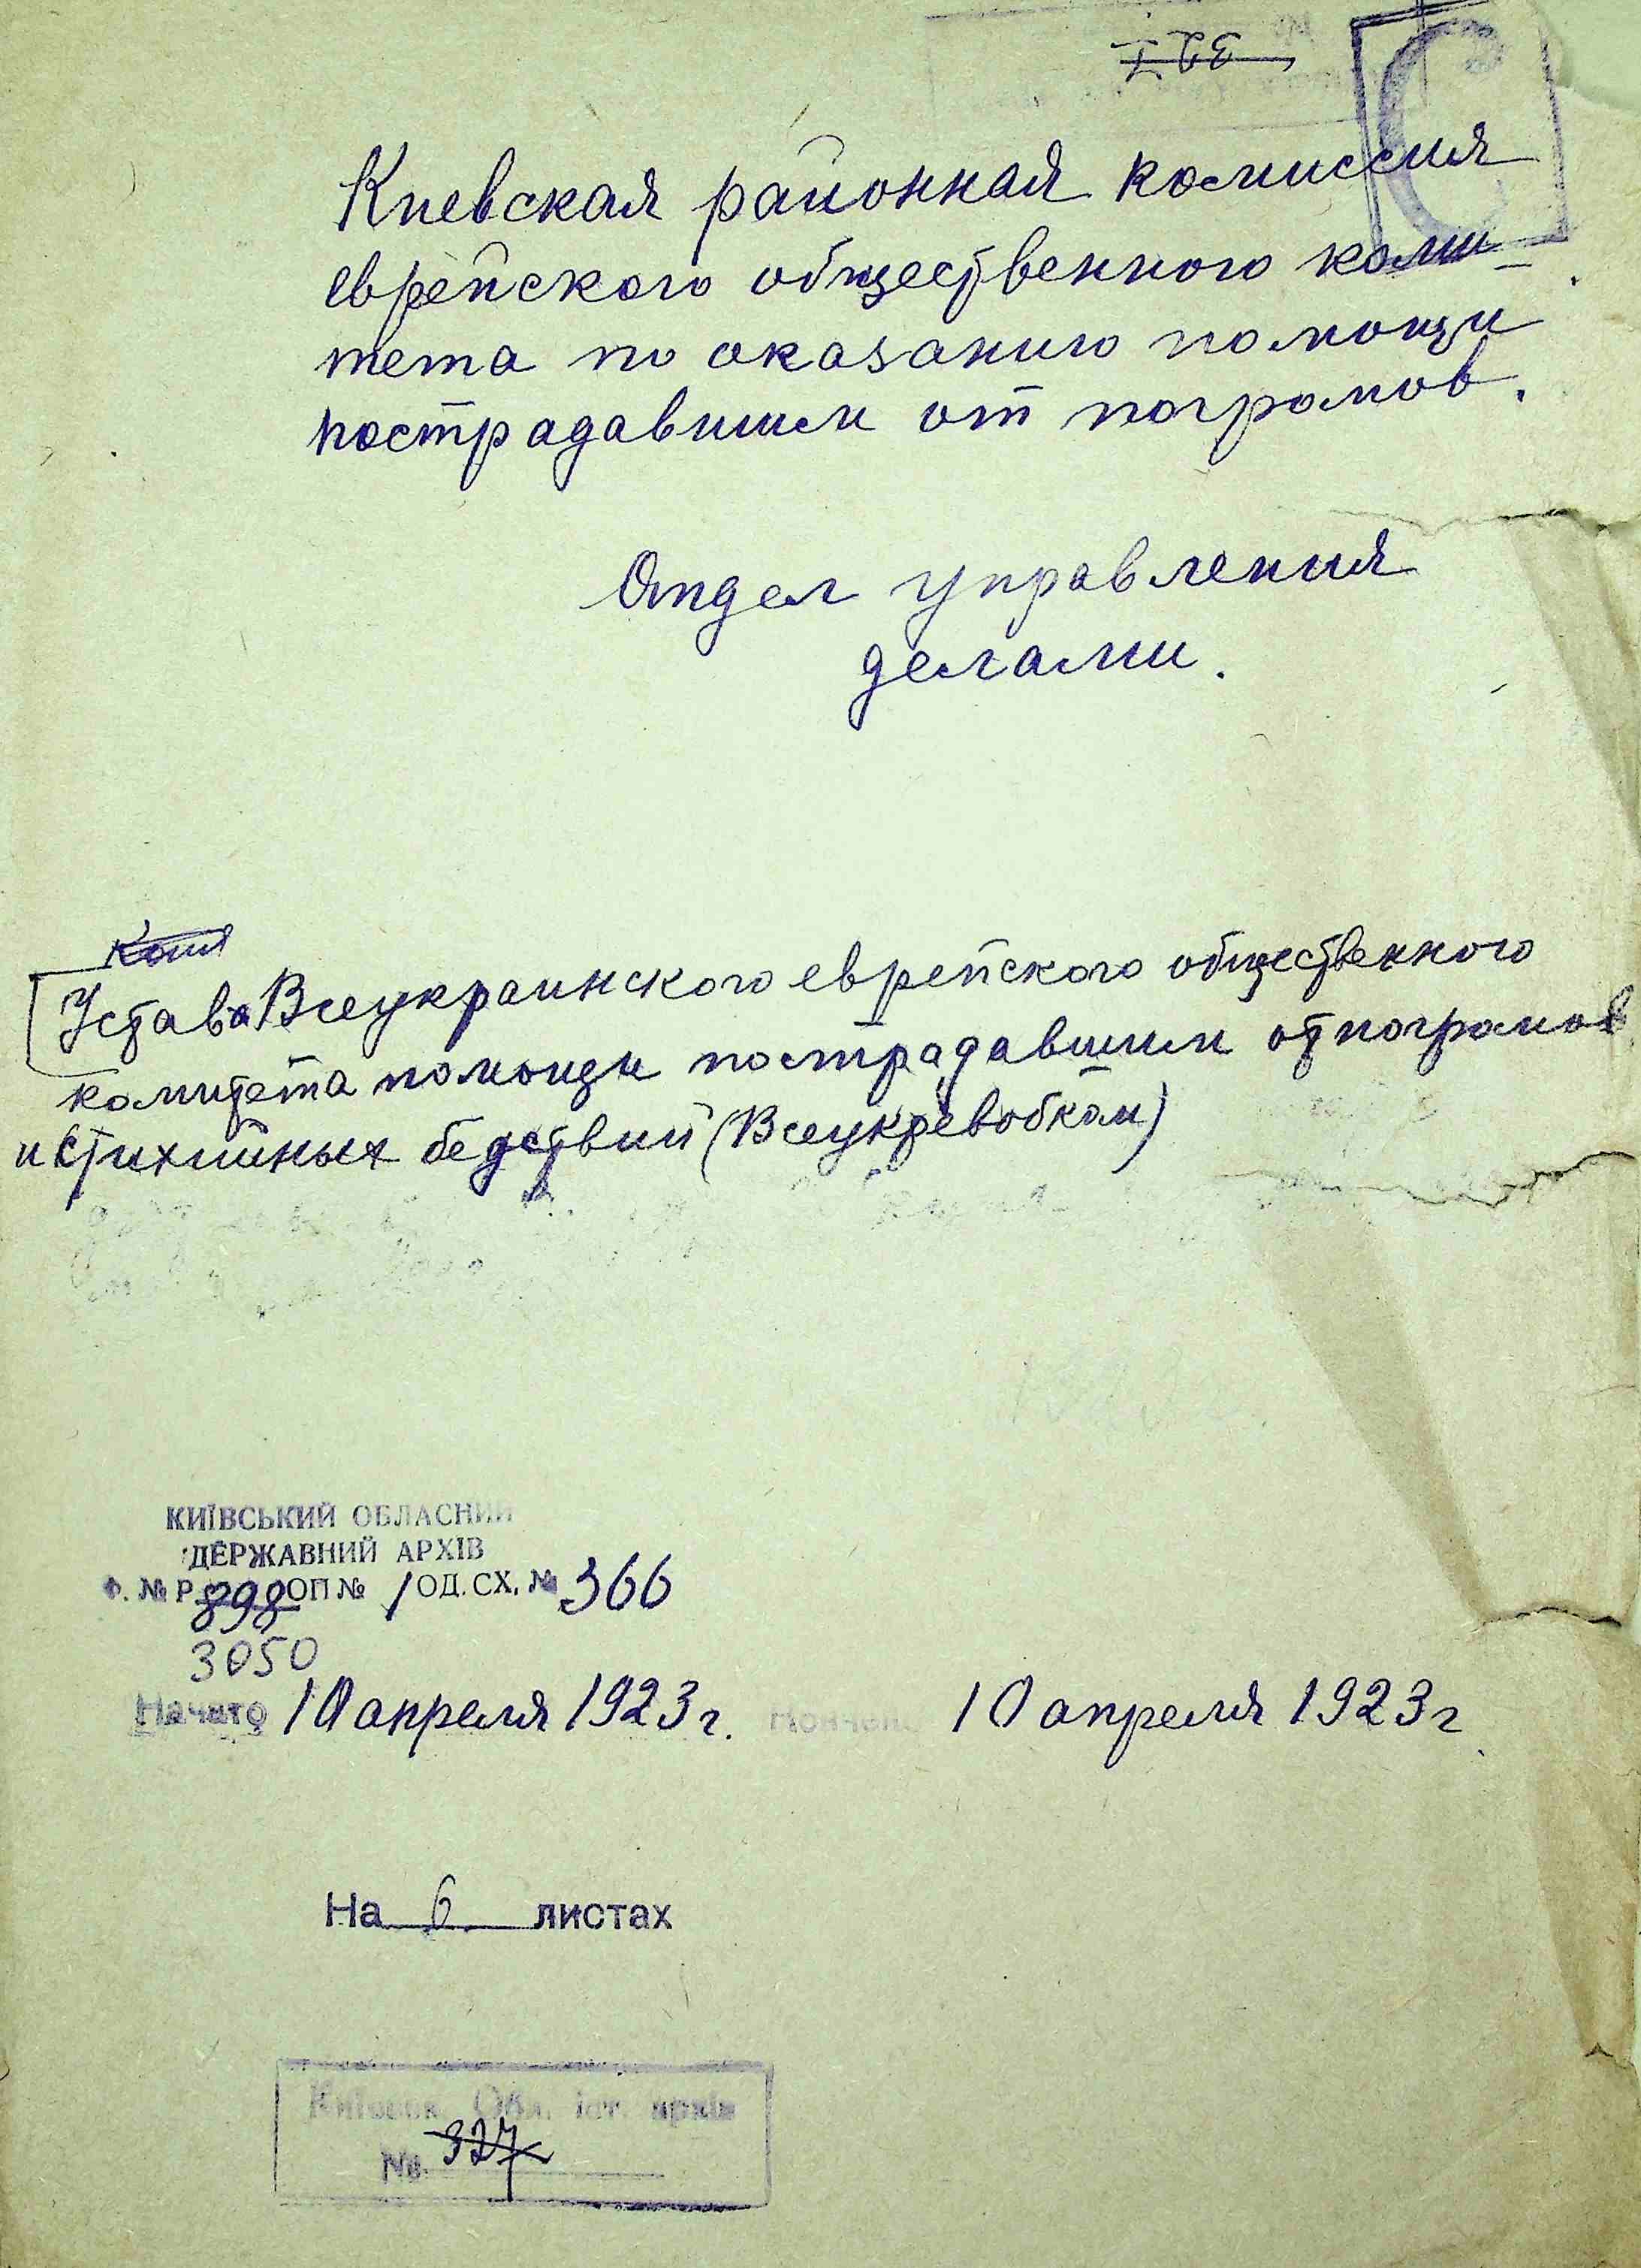 327
Киевская районная комиссия
еврейского общественного коми-
тета по оказанию помощи
пострадавшим от погромов.
Отдел управления
делами.
Копия
Устава Всеукраинского еврейского общественного
комитета помощи пострадавшим от погромов
и стихийных бедствий (Всеукревобком)
КИЇВСЬКИЙ ОБЛАСНИЙ
ДЕРЖАВНИЙ АРХІВ
Ф. № Р 898 ОП № 1 ОД. СХ. № 366
3050
Начато 10 апреля 1923 г. Кончено 10 апреля 1923 г.
На 6 листах
Київськ. Обл. іст. архів
№ 327